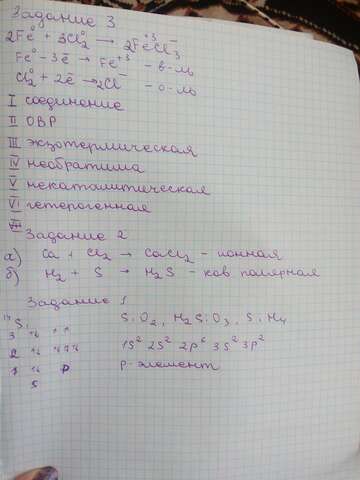 Задание 3
2Fe⁰ + 3Cl₂⁰ → 2Fe⁺³Cl₃⁻
Fe⁰ - 3ē → Fe⁺³ - в-ль
Cl₂⁰ + 2ē → 2Cl⁻ - о-ль
I соединение
II ОВР
III экзотермическая
IV необратима
V некаталитическая
VI гетерогенная
VII
Задание 2
а) Ca + Cl₂ → CaCl₂ - ионная
б) H₂ + S → H₂S - ков полярная
Задание 1
¹⁴Si SiO₂, H₂SiO₃, SiH₄
3
2 1S² 2S² 2p⁶ 3S² 3p²
1 p p-элемент
S